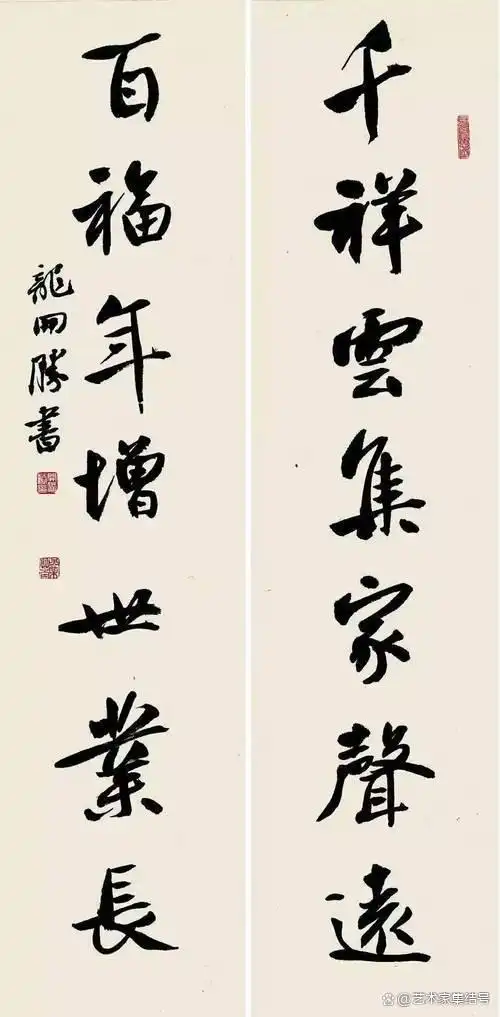 千祥雲集家聲遠
百福年增世業長
龍開勝書
@艺术家集结号